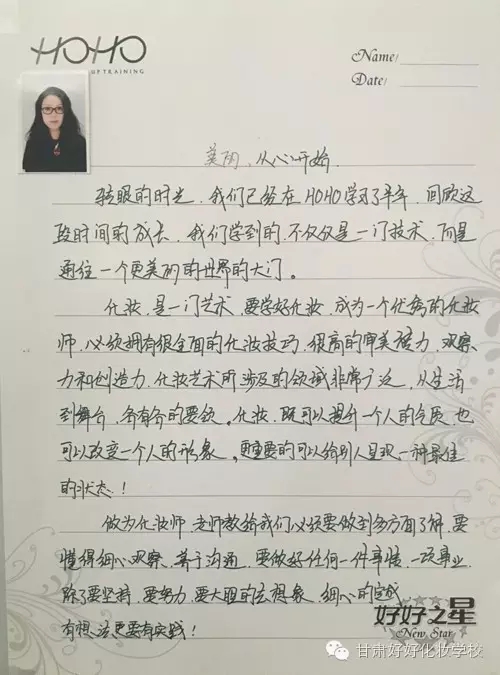 HOHO
UP TRAINING
Name:
Date:
美丽,从心开始.
转眼的时光,我们已经在HOHO学习了半年,回顾这
段时间的成长,我们学到的不仅仅是一门技术,而是
通往一个更美丽的世界的大门。
化妆,是一门艺术,要学好化妆,成为一个优秀的化妆
师,必须拥有很全面的化妆技巧,很高的审美能力,观察
力和创造力,化妆艺术所涉及的领域非常广泛,从生活
到舞台,各有各的要领。化妆,既可以提升一个人的气质,也
可以改变一个人的形象。更重要的可以给别人呈现一种最佳
的状态!
做为化妆师,老师教给我们必须要做到多方面了解,要
懂得细心观察,善于沟通,要做好任何一件事情,一项事业,
除了要坚持,要努力,要大胆的去想象,细心的完成
有想法更要有实践!
好好之星
New Star
甘肃好好化妆学校